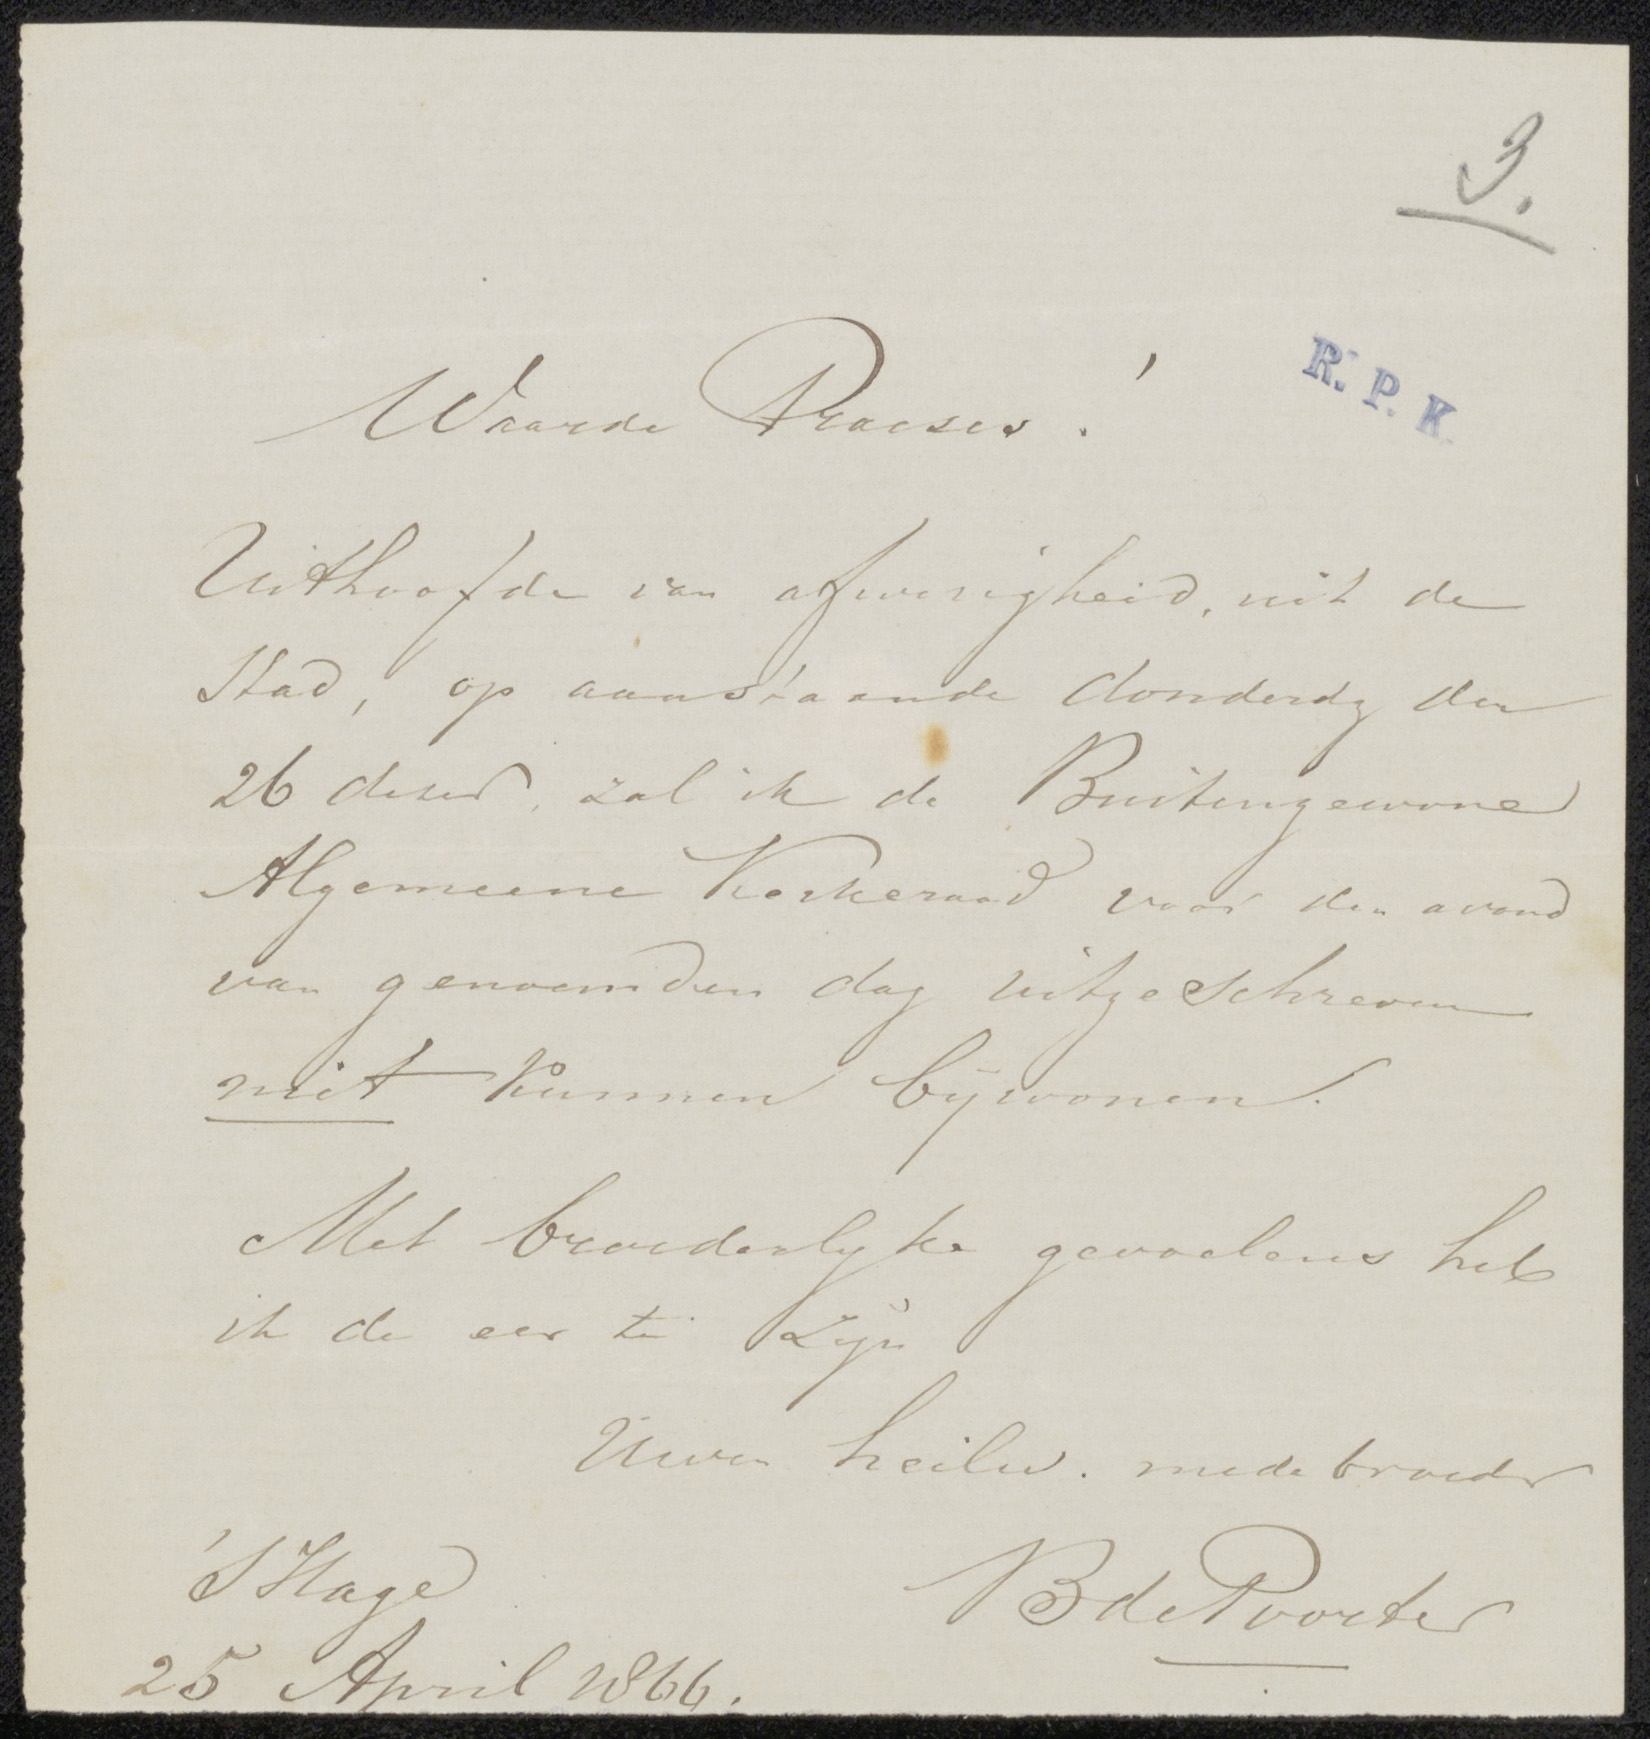 3.
R. P. K.
Waarde Praeses!
Uithoofde van afwezigheid, uit de
Stad, op aanstaande donderdg den
26 dezer, zal ik de Buitengewone
Algemeene Kerkeraad voor den avond
van genoemden dag uitgeschreven
niet kunnen bijwonen.
Met broederlyke gevoelens heb
ik de eer te zijn
Uwen heilw. medebroeder
'S Hage
BdePoorter
25 April 1866.